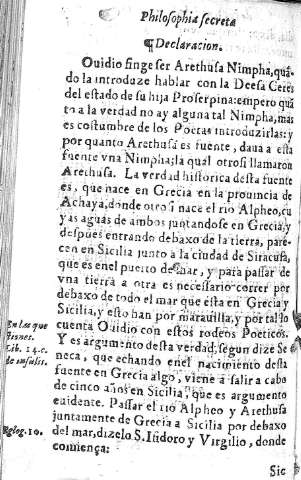 Philosophia secreta
¶Declaracion.
Ouidio finge ser Arethusa Nimpha, quã-
do la introduze hablar con la Deesa Ceres
del estado de su hija Proserpina: empero quã
to a la verdad no ay alguna tal Nimpha, mas
es costumbre de los Poetas introduzirlas: y
por quanto Arethusa es fuente, daua a esta
fuente vna Nimpha; la qual otrosi llamaron
Arethusa. La verdad historica desta fuente
es, que nace en Grecia en la prouincia de
Achaya, donde otro si nace el rio Alpheo, cu
yas aguas de ambos juntandose en Grecia, y
despues entrando debaxo de la tierra, pare-
cen en Sicilia junto a la ciudad de Siracusa,
que es en el puerto de mar, y para passar de
vna tierra a otra es necessario correr por
debaxo de todo el mar que esta en Grecia y
Sicilia, y esto han por marauilla, y por tal lo
cuenta Ouidio con estos rodeos Poeticos.
Y es argumento desta verdad, segun dize Se
neca, que echando en el nacimiento desta
fuente en Grecia algo, viene a salir a cabo
de cinco años en Sicilia, que es argumento
euidente. Passar el rio Alpheo y Arethusa
juntamente de Grecia a Sicilia por debaxo
del mar, dizelo S. Isidoro y Virgilio, donde
comiença:
Sic
En las que
stiones.
Lib. 14. c.
de insulis.
Eglog. 10.